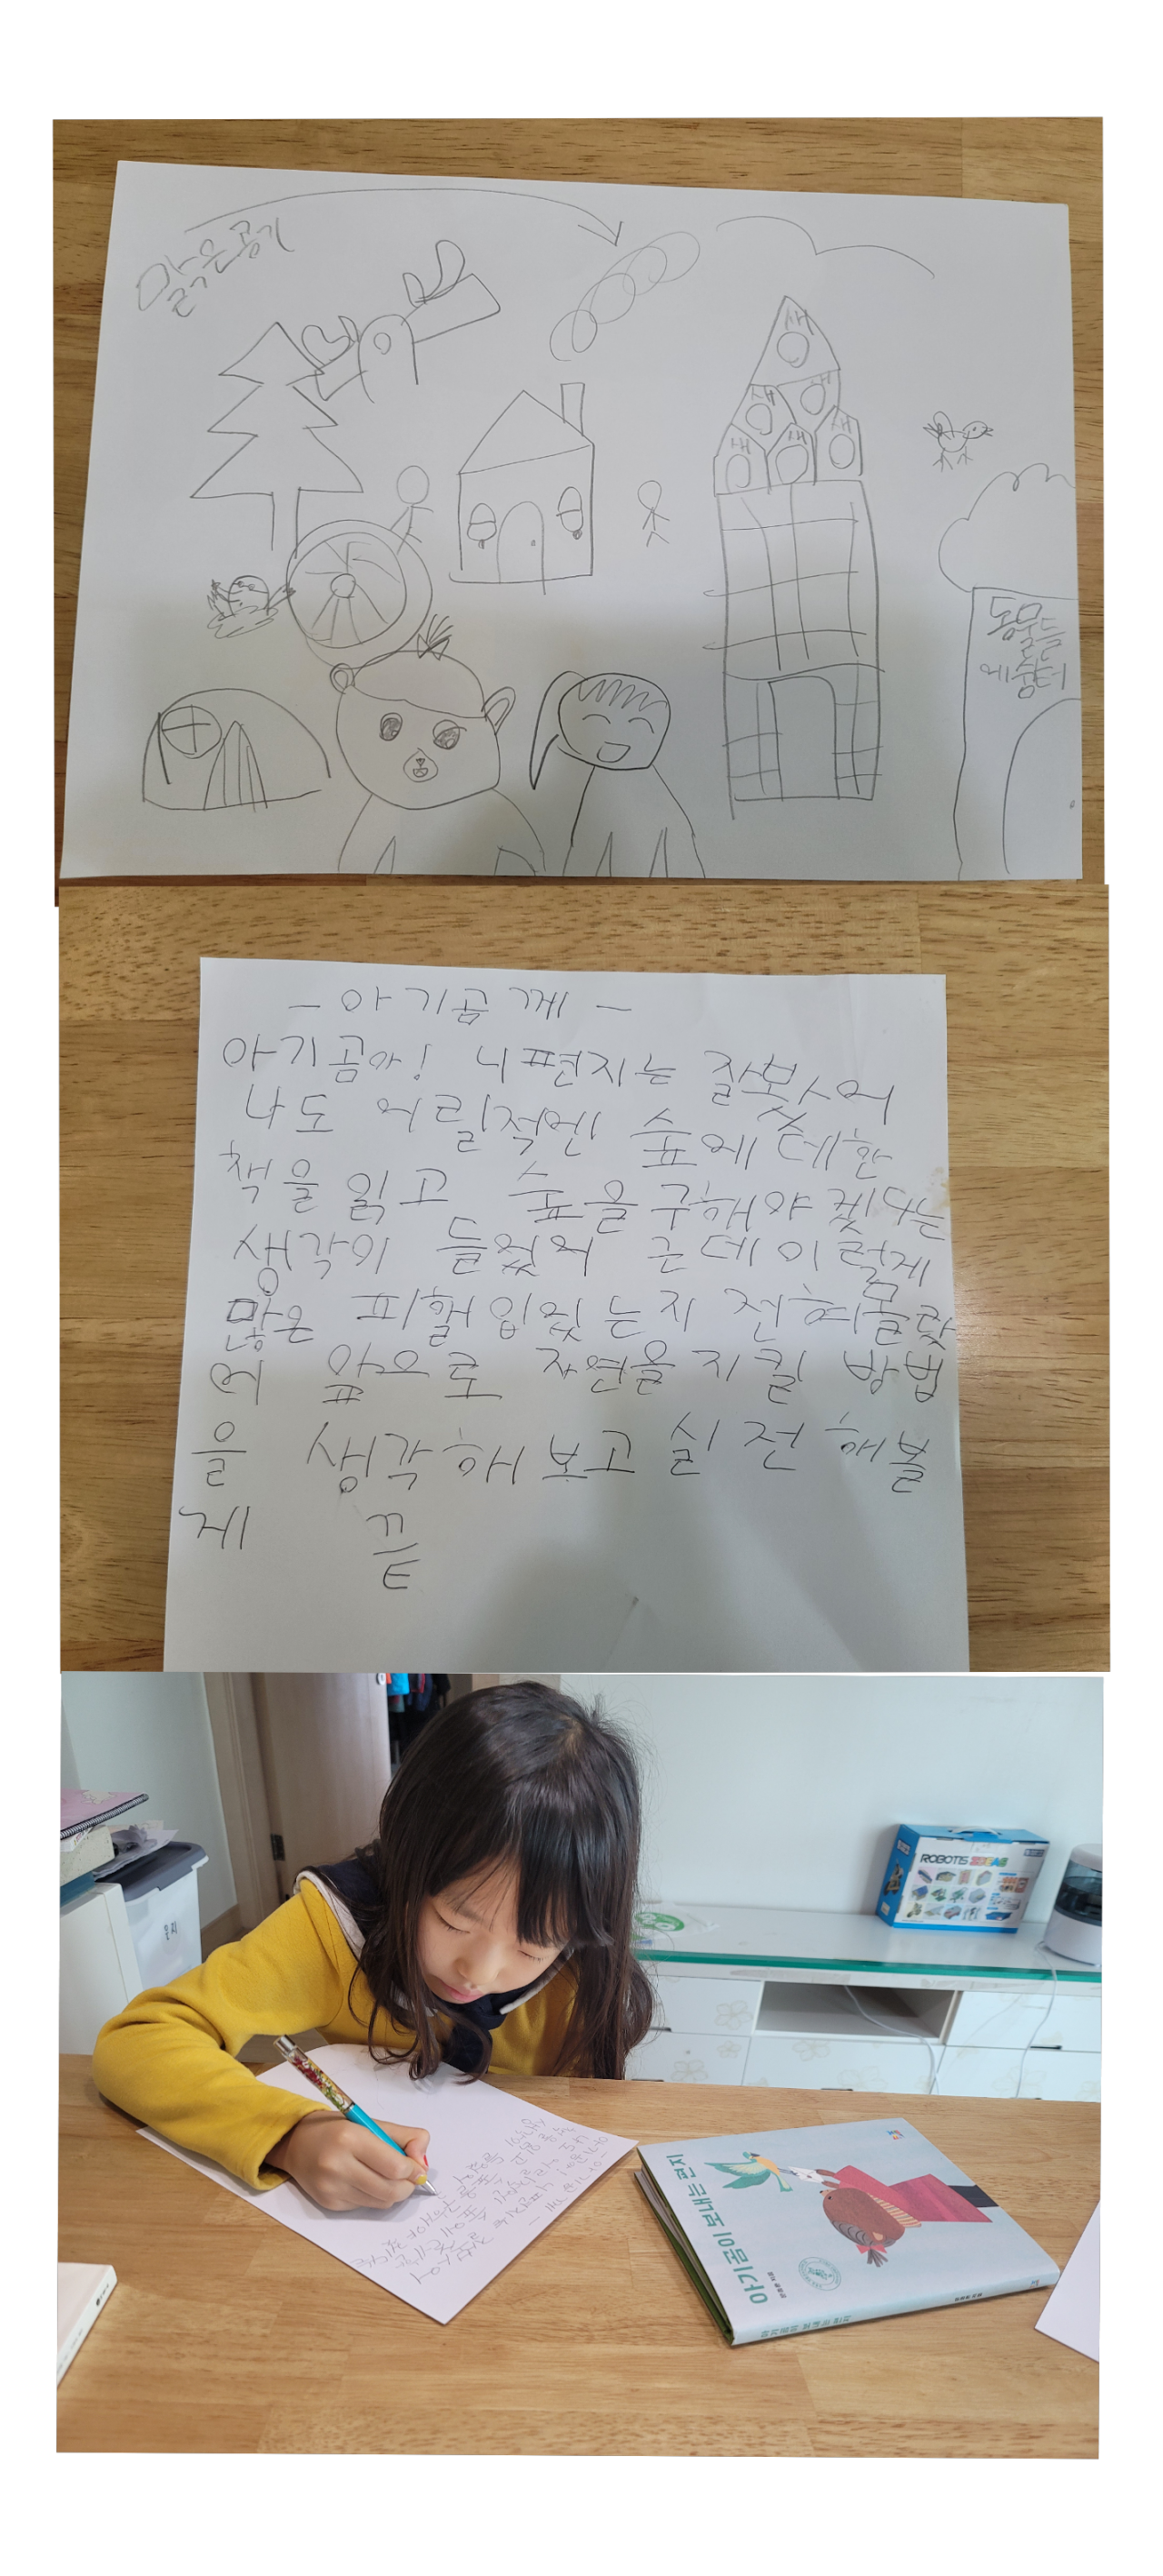 맑은공기
새
새
새
새
새
새
동물들
에쉼터
- 아기곰께 -
아기곰아! 니편지는 잘봤어
나도 어릴적엔 숲에 데한
책을 읽고 숲을 구해야 겠다는
생각이 들었어 근데 이렇게
많은 피헬 입었는지 전혀몰랐
어 앞으로 자연을 지킬 방법
을 생각해보고 실전해볼
게 끝
일지
ROBOTIS
아기곰이 보내는 편지
아기곰이 보내는 편지